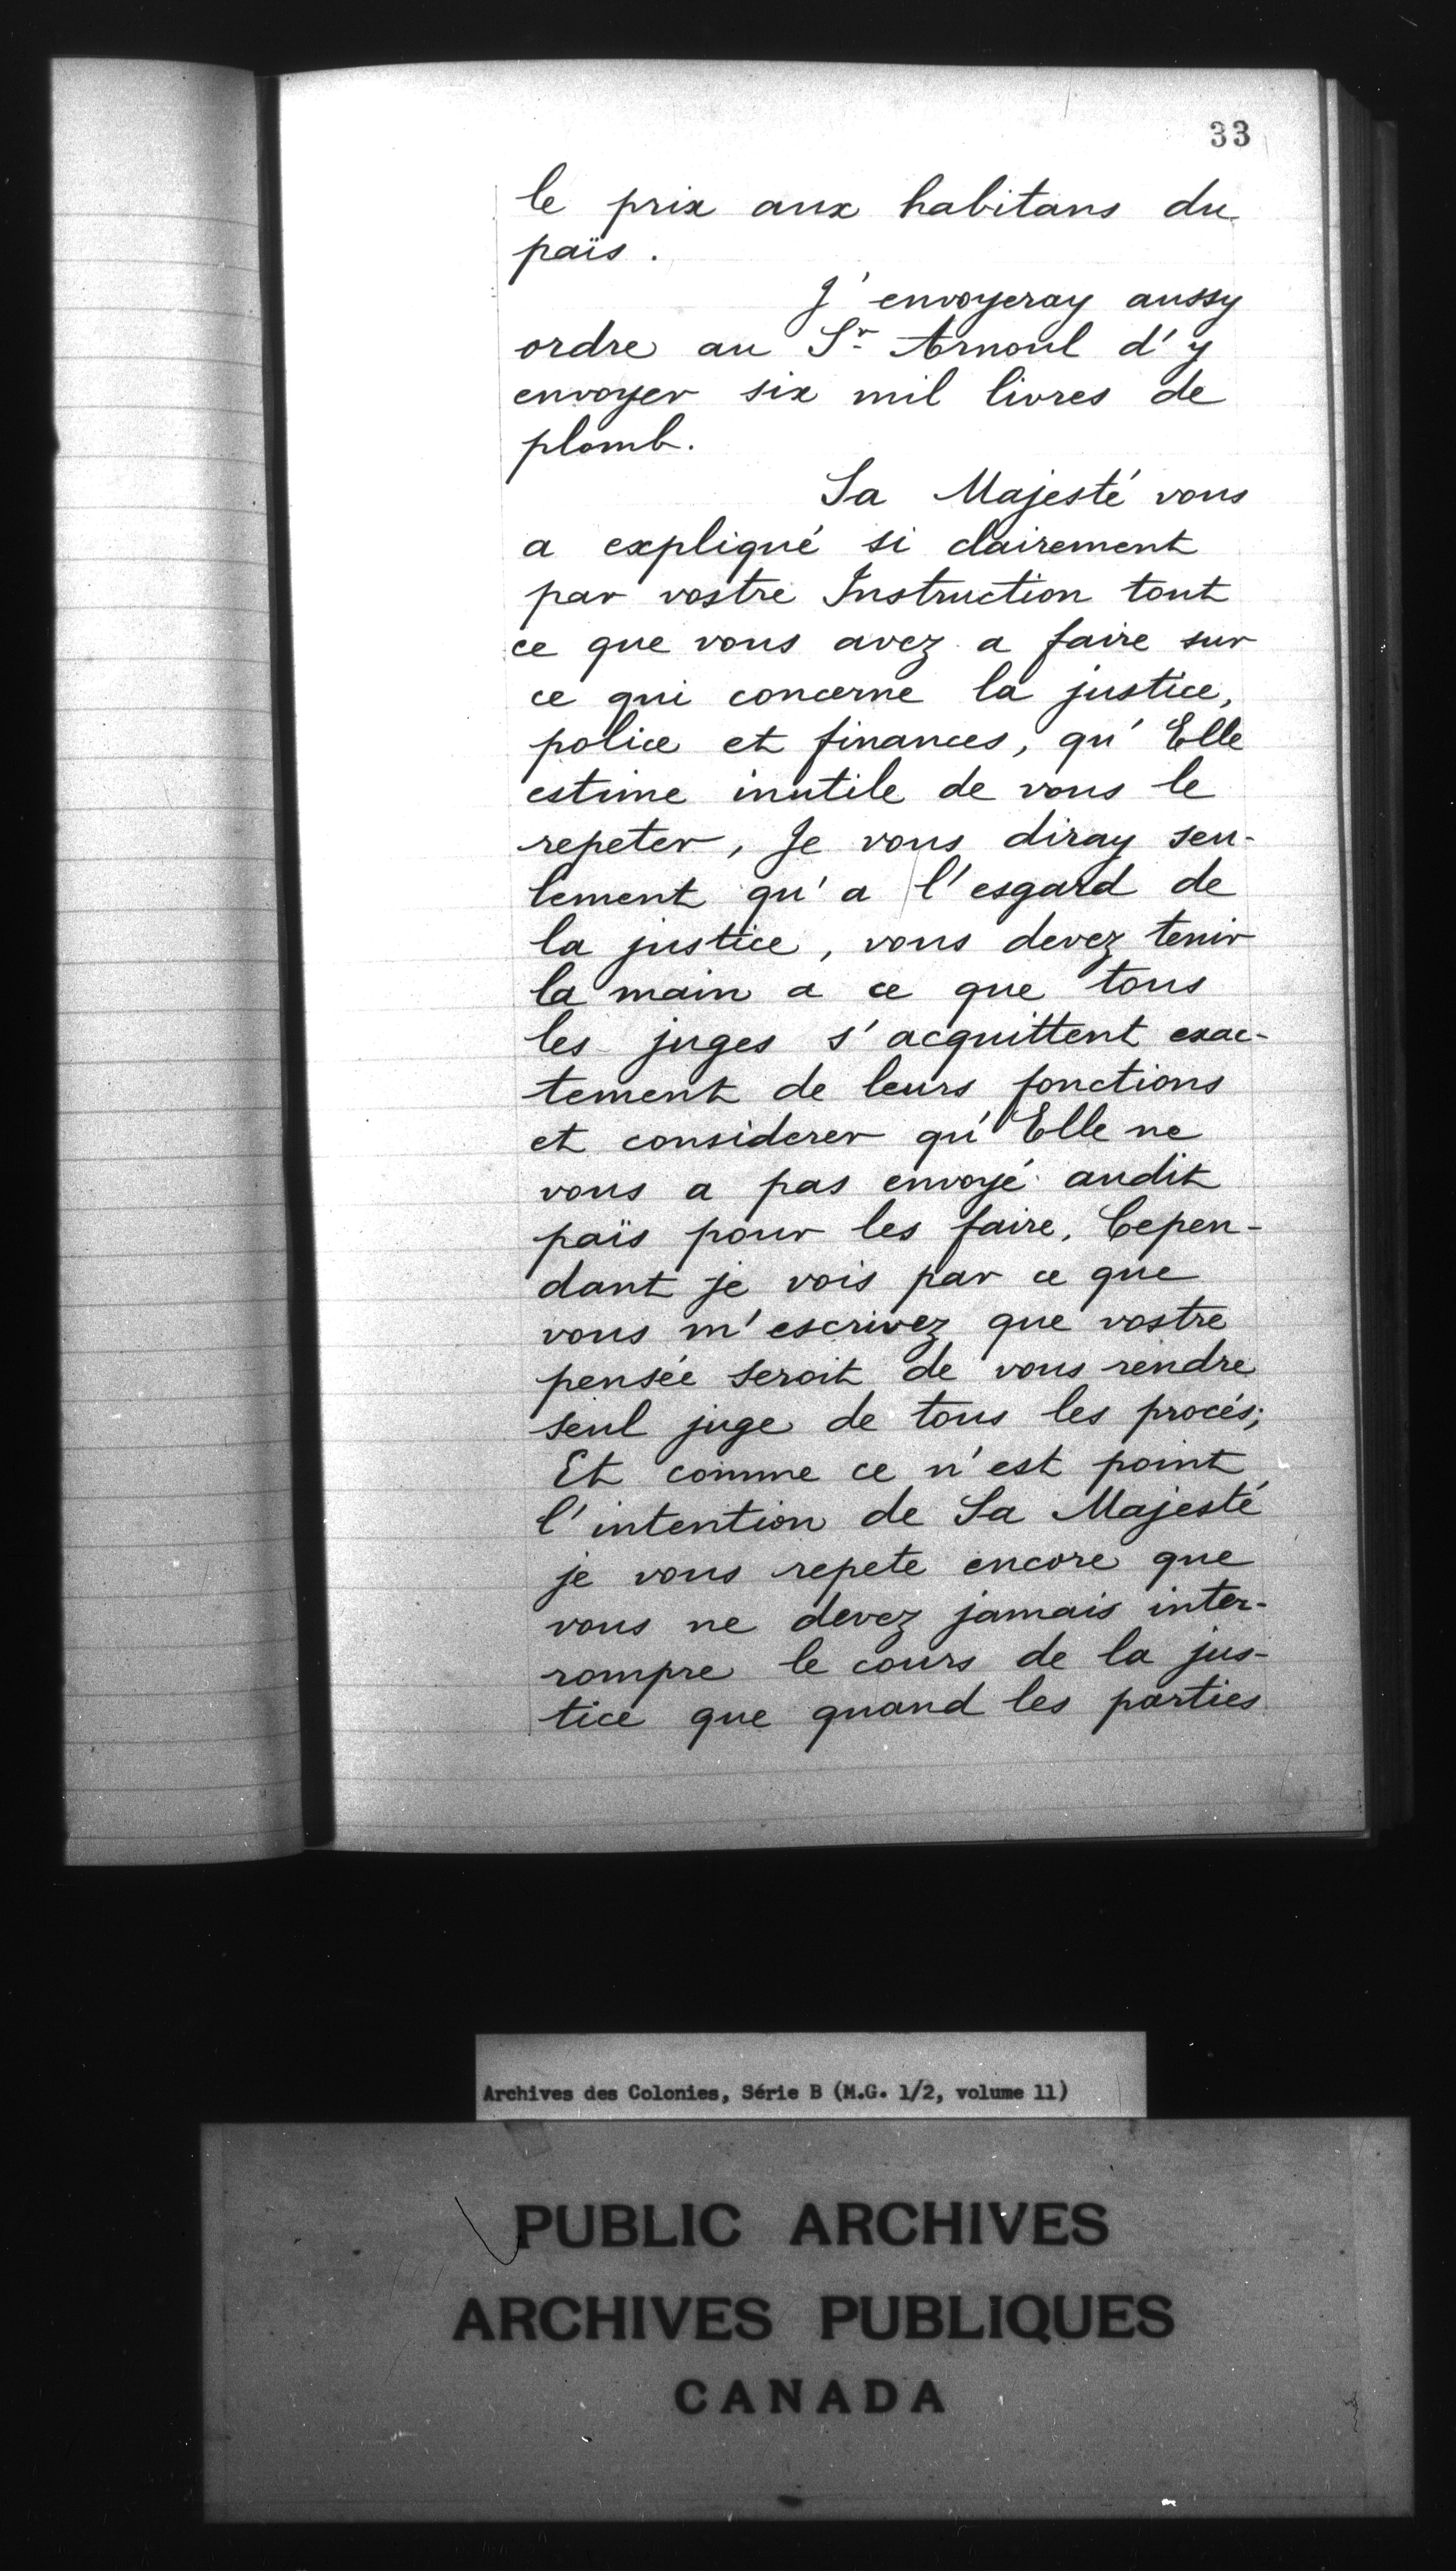 33
le prix aux habitans du
païs.
J'envoyeray aussy
ordre au Sr. Arnoul d'y
envoyer six mil livres de
plomb.
Sa Majesté vous
a expliqué si clairement
par vostre Instruction tout
ce que vous avez a faire sur
ce qui concerne la justice,
police et finances, qu'Elle
estime inutile de vous le
repeter, Je vous diray seu-
lement qu'a l'esgard de
la justice, vous devez tenir
la main a ce que tous
les juges s'acquittent exac-
tement de leurs fonctions
et considerer qu'Elle ne
vous a pas envoyé audit
païs pour les faire. Cepen-
dant je vois par ce que
vous m'escrivez que vostre
pensée seroit de vous rendre
seul juge de tous les procés;
Et comme ce n'est point
l'intention de Sa Majesté
je vous repete encore que
vous ne devez jamais inter-
rompre le cours de la jus-
tice que quand les parties
Archives des Colonies, Série B (M.G. 1/2, volume 11)
PUBLIC ARCHIVES
ARCHIVES PUBLIQUES
CANADA